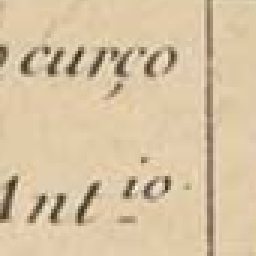 curço
Ant.io